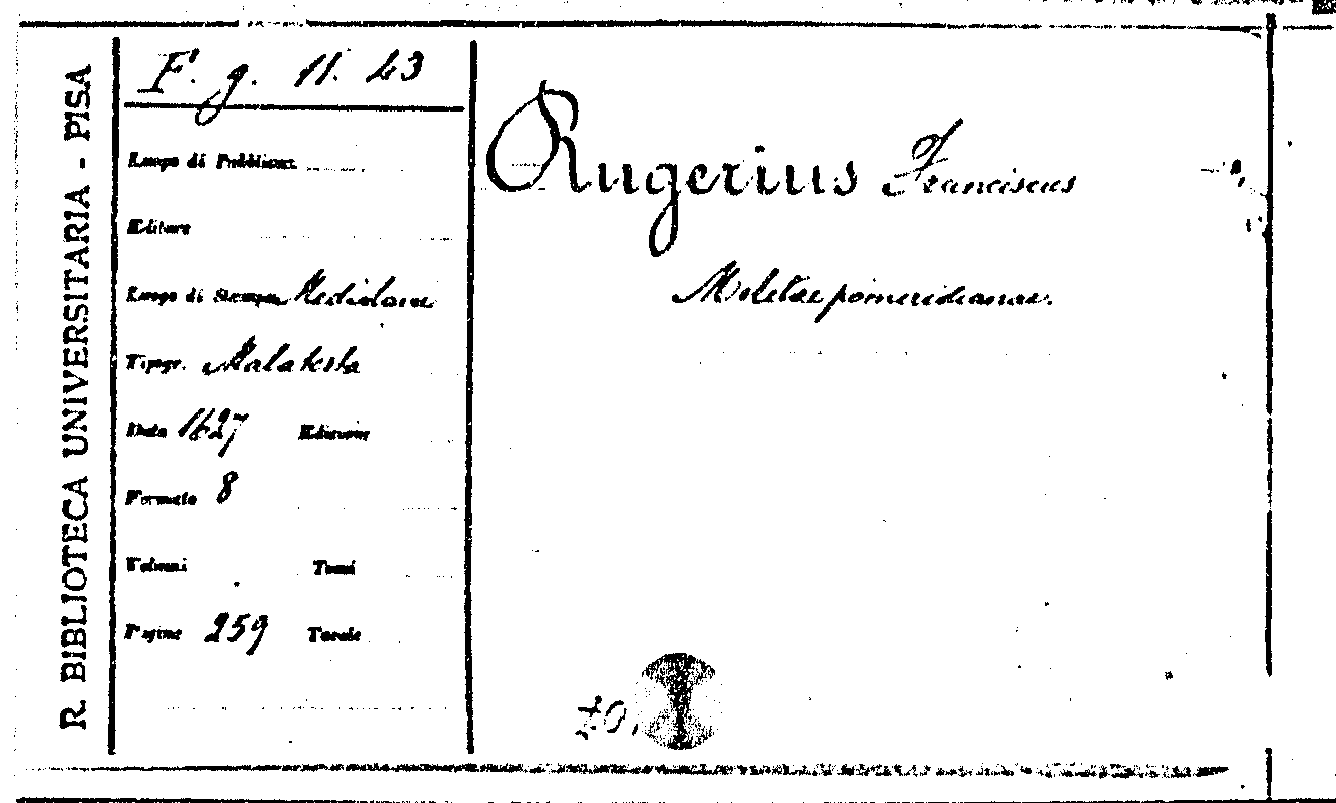 R. BIBLIOTECA UNIVERSITARIA - PISA
F. g. 11. 43
Luogo di Pubblicaz.
Editore
Luogo di Stampa Mediolani
Tipogr. Malatesta
Data 1627 Edizione
Formato 8
Volumi Tomi
Pagine 259 Tavole
Rugerius Franciscus
Meletae pomeridianae.